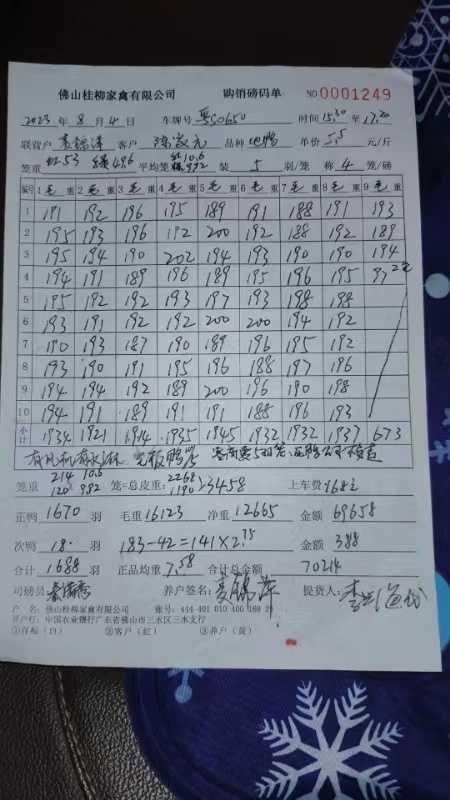 佛山桂柳家禽有限公司 购销磅码单 NO 0001249
2023 年 8 月 4 日 车牌号 粤S0650 时间 15,30 至 17,20
联营户 客户 品种 单价 5.5 元/斤
笼重 红53 绿496 平均笼 红10.6 992 装 5 羽/笼 称 4 笼/磅
编号 1 毛 重 2 毛 重 3 毛 重 4 毛 重 5 毛 重 6 毛 重 7 毛 重 8 毛 重 9 毛 重
1 191 192 196 195 189 191 188 191 193
2 195 193 196 192 200 192 188 192 189
3 195 194 190 202 194 193 190 190 194
4 194 191 189 196 189 195 196 195 97
5 195 192 192 193 197 193 198 198
6 193 191 192 192 200 200 194 192
7 190 193 187 190 189 196 195 192
8 193 190 191 195 196 188 197 196
9 194 194 192 189 200 196 190 198
10 194 191 189 191 191 188 196 193
小计 1934 1921 1914 1935 1945 1932 1932 1937 673
笼重 214 10.6 120 992 笼=总皮重: 2268 1190 3458 上车费 168元
正鸭 1670 羽 毛重 16123 净重 12665 金额 69658
次鸭 18 羽 183-42=141×2.75 金额 388
合计 1688 羽 正品均重 7.58 合计总金额 70214
司磅员 养户签名: 提货人:
户 名：佛山桂柳家禽有限公司 账号：444 401 010 400 168 29
开户行：中国农业银行广东省佛山市三水区三水支行
①存根（白） ②客户（红） ③养户（黄）